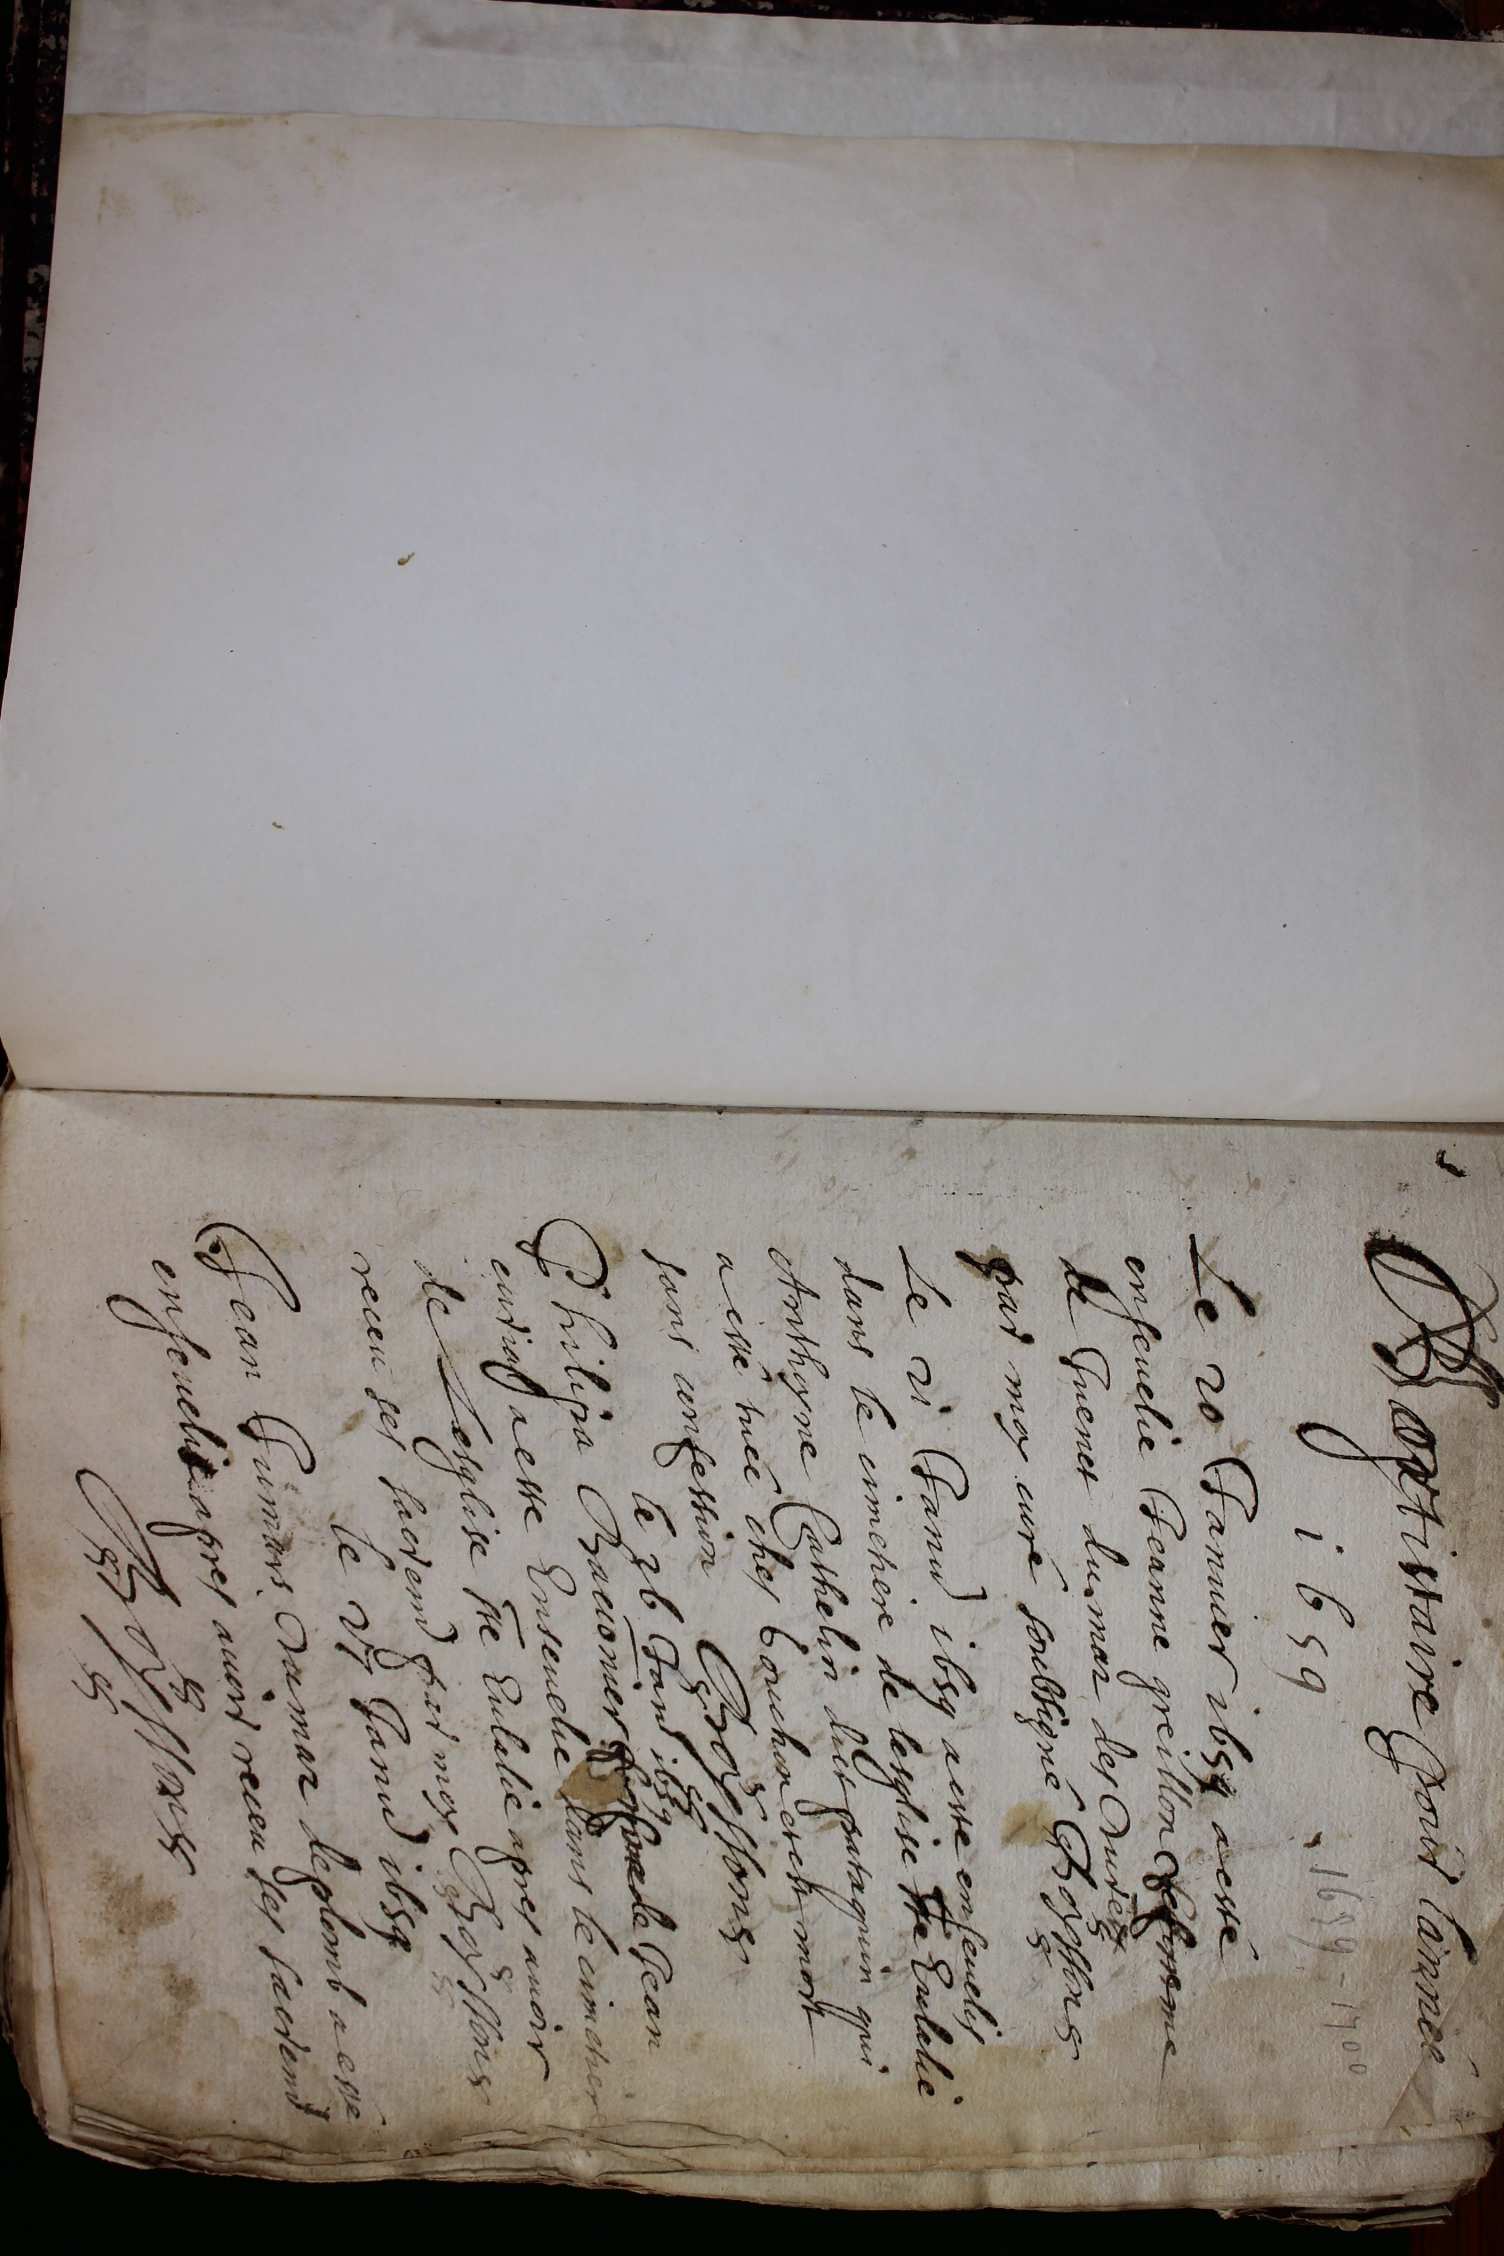 Baptistaire pour l'année
i659
1659-1700
Le 20 Januier i659 a esté
enseuelie Jeanne greillon femme
de Guenet dumas des
par moy curé soubsigné Boyssons
Le 21 Januier i659 a esté enseuelis
dans le cimetiere de lesglise Ste Eulalie
Anthoyne Cathelin dict patagouin qui
a esté tuée ches Bouchon et est mort
sans confession Boyssons
le 26 Janu i659
Philipa femme de Jean
a este Enseuelie dans le cimetiere
de Lesglise Ste Eulalie apres auoir
receu ses sacremts par moy Boyssons
le 27 Januier i659
Jean Dumas deplomb a esté
enseueli apres auoir receu ses sacremts
Boyssons